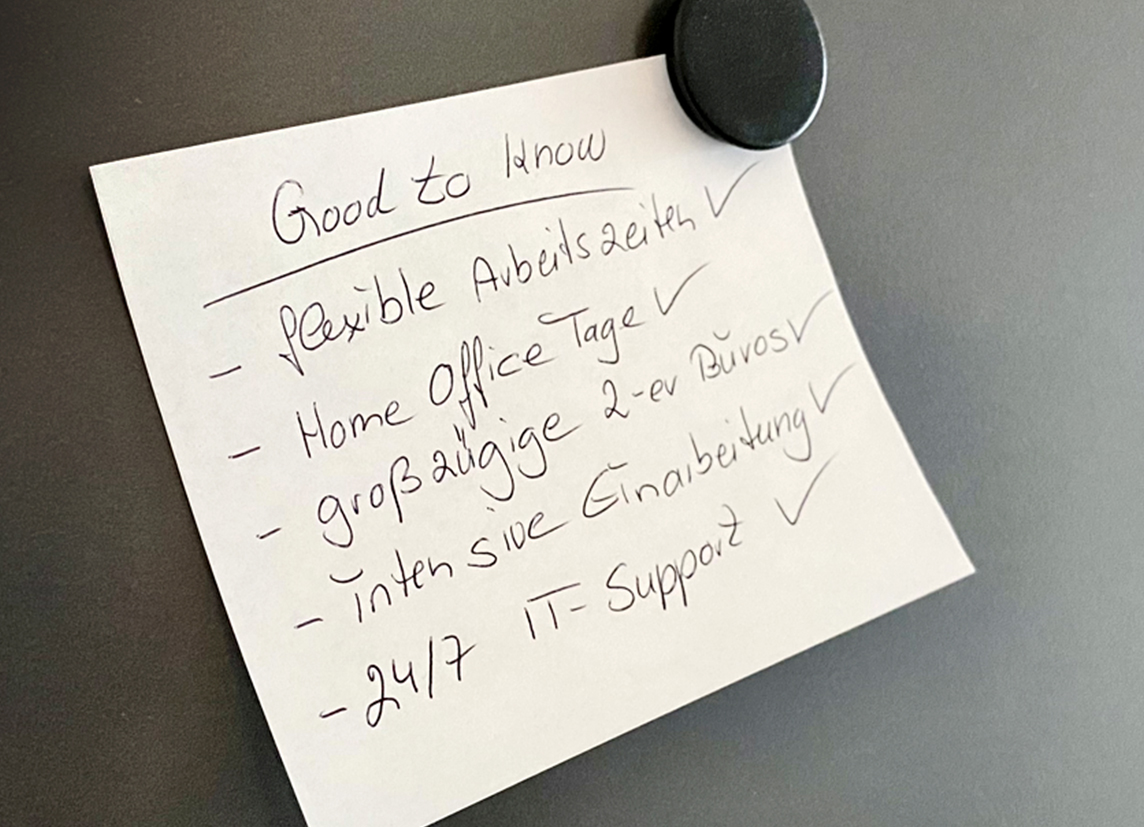 Good to know
- flexible Arbeitszeiten ✓
- Home Office Tage ✓
- großzügige 2-er Büros ✓
- intensive Einarbeitung ✓
- 24/7 IT-Support ✓